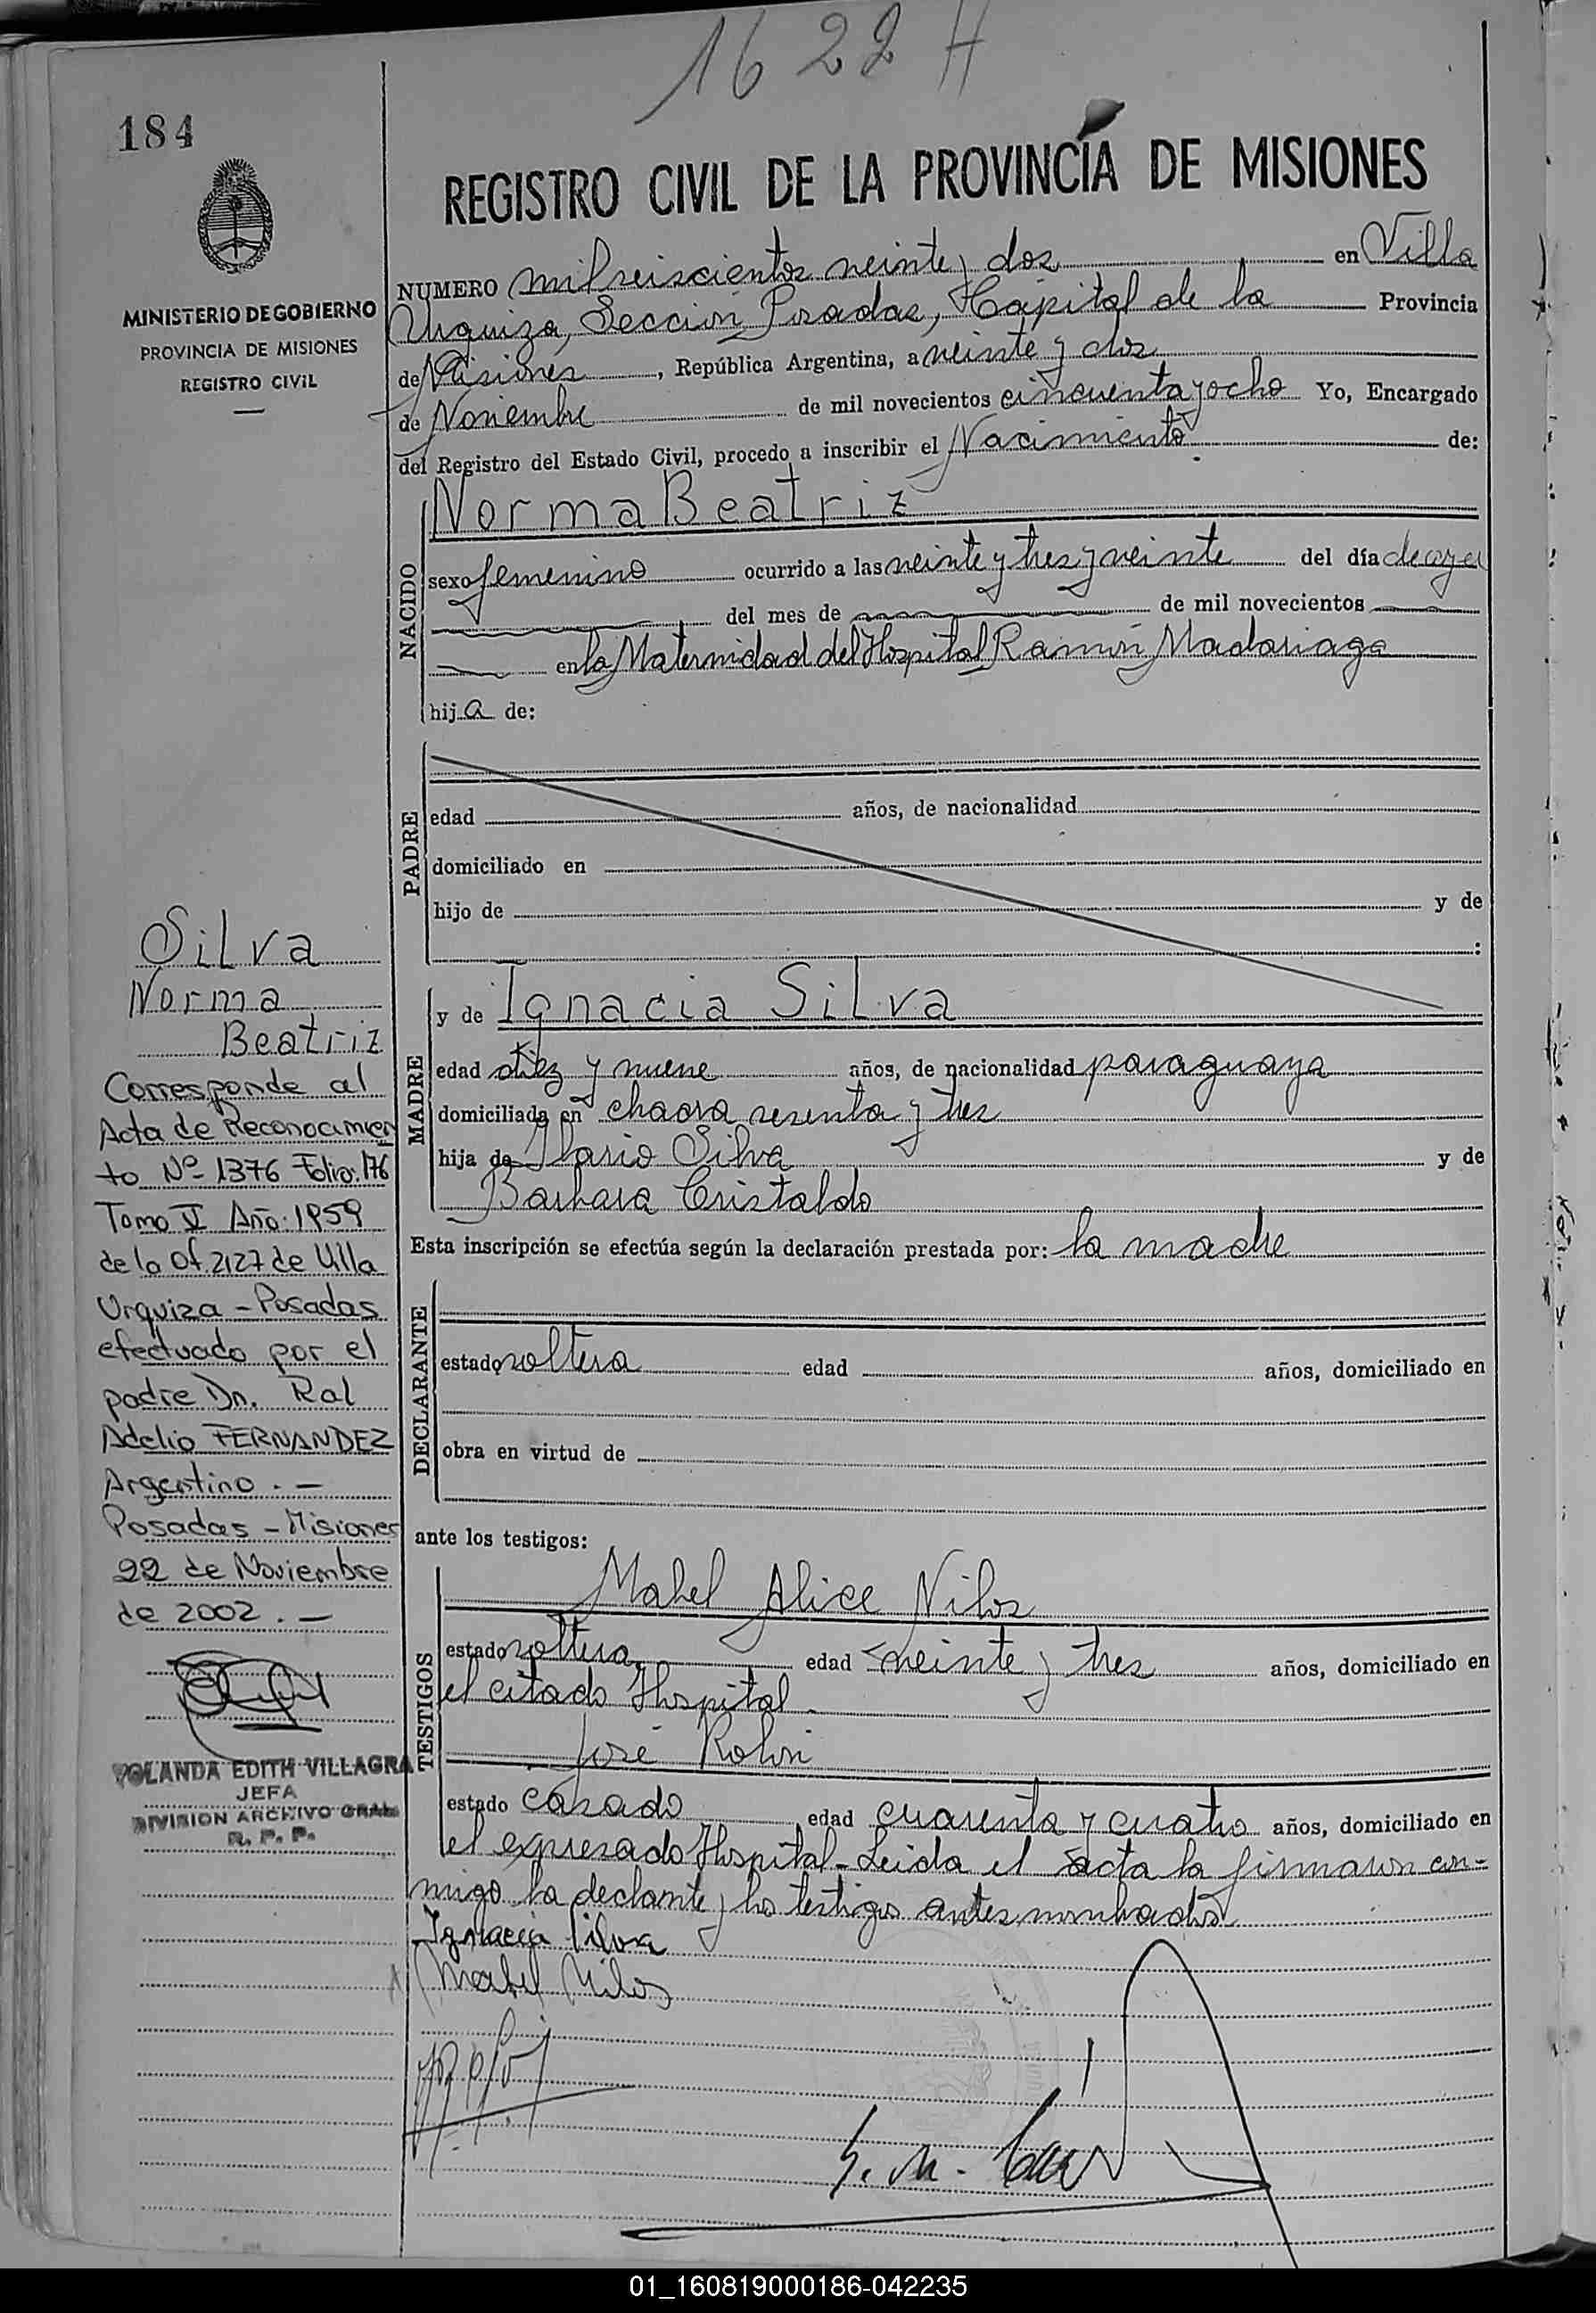 1622 H
184
REGISTRO CIVIL DE LA PROVINCIA DE MISIONES
MINISTERIO DE GOBIERNO
PROVINCIA DE MISIONES
REGISTRO CIVIL
NUMERO mil seiscientos veinte y dos en Villa
Urquiza, Sección Posadas, Capital de la Provincia
de Misiones, República Argentina, a veinte y dos
de Noviembre de mil novecientos cincuenta y ocho Yo, Encargado
del Registro del Estado Civil, procedo a inscribir el Nacimiento de:
NACIDO
Norma Beatriz
sexo femenino ocurrido a las veinte y tres y veinte del día de ayer
del mes de de mil novecientos
en la Maternidad del Hospital Ramón Madariaga
hija de:
PADRE
edad años, de nacionalidad
domiciliado en
hijo de y de
:
MADRE
y de Ignacia Silva
edad diez y nueve años, de nacionalidad paraguaya
domiciliada en chacra sesenta y tres
hija de Ilario Silva y de
Barbara Cristaldo
Esta inscripción se efectúa según la declaración prestada por: la madre
DECLARANTE
estado soltera edad años, domiciliado en
obra en virtud de
ante los testigos:
TESTIGOS
Mabel Alice Nilos
estado soltera, edad veinte y tres años, domiciliado en
el citado Hospital.
José
estado casado edad cuarenta y cuatro años, domiciliado en
el expresado Hospital - Leida el acta la firmaron con-
migo la declante y los testigos antes nombrados
Ignacia Silva
Mabel Nilos
Silva
Norma
Beatriz
Corresponde al
Acta de Reconocimien
to Nº 1376 Folio: 176
Tomo V Año: 1959
de la Of. 2127 de Villa
Urquiza - Posadas
efectuado por el
padre Dn. Ral
Adelio FERNANDEZ
Argentino . -
Posadas - Misiones
22 de Noviembre
de 2002 . -
YOLANDA EDITH VILLAGRA
JEFA
DIVISION ARCHIVO GRAL
R. P. P.
01_160819000186-042235